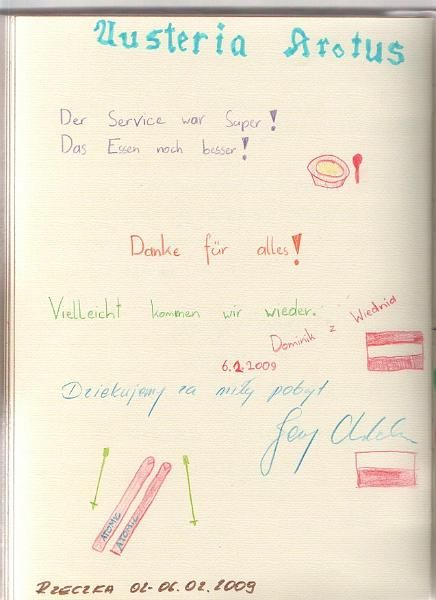 Austeria Arotus
Der Service war Super!
Das Essen noch besser!
Danke für alles!
Vielleicht kommen wir wieder.
Dominik z Wiednia
6.2.2009
Dziekujemy za miły pobyt
ATOMIC
ATOMIC
RZECZKA 02-06.02.2009